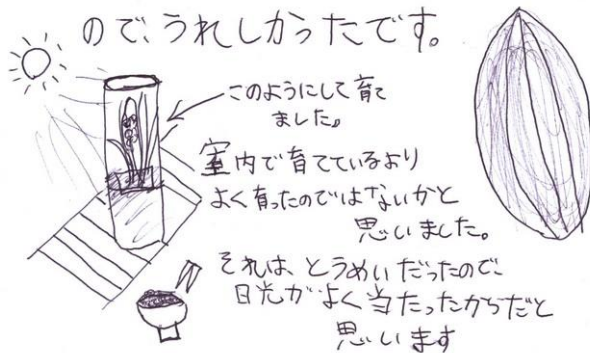 ので、うれしかったです。
このようにして育て
ました。
室内で育てているより
よく育ったのではないかと
思いました。
それは、とうめいだったので、
日光がよく当たったからだと
思います